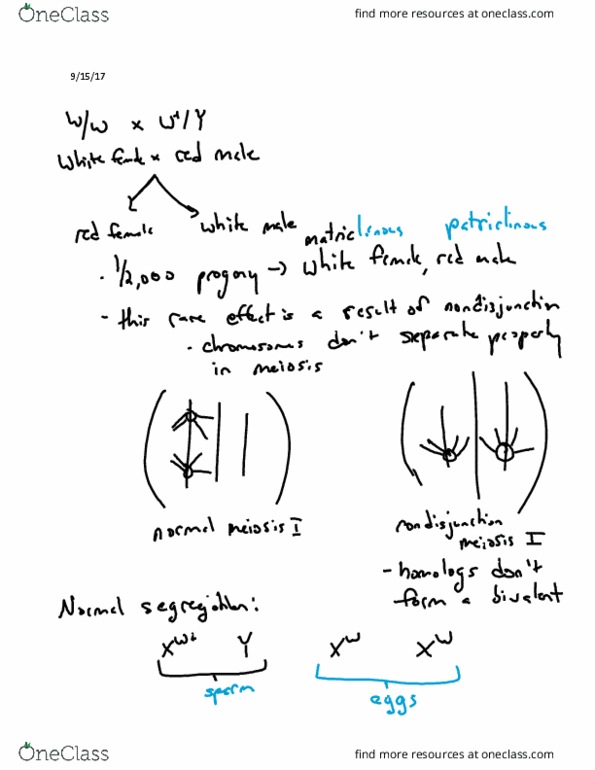 OneClass
find more resources at oneclass.com
9/15/17
W/w x W+/Y
White female x red male
red female white male matriclinous patriclinous
· 1/2,000 progeny → white female, red male
- this rare effect is a result of nondisjunction
· chromosomes don't separate properly
in meiosis
normal meiosis I
nondisjunction
meiosis I
- homologs don't
form a bivalent
Normal segregation:
X^W+ Y X^W X^W
sperm
eggs
OneClass
find more resources at oneclass.com